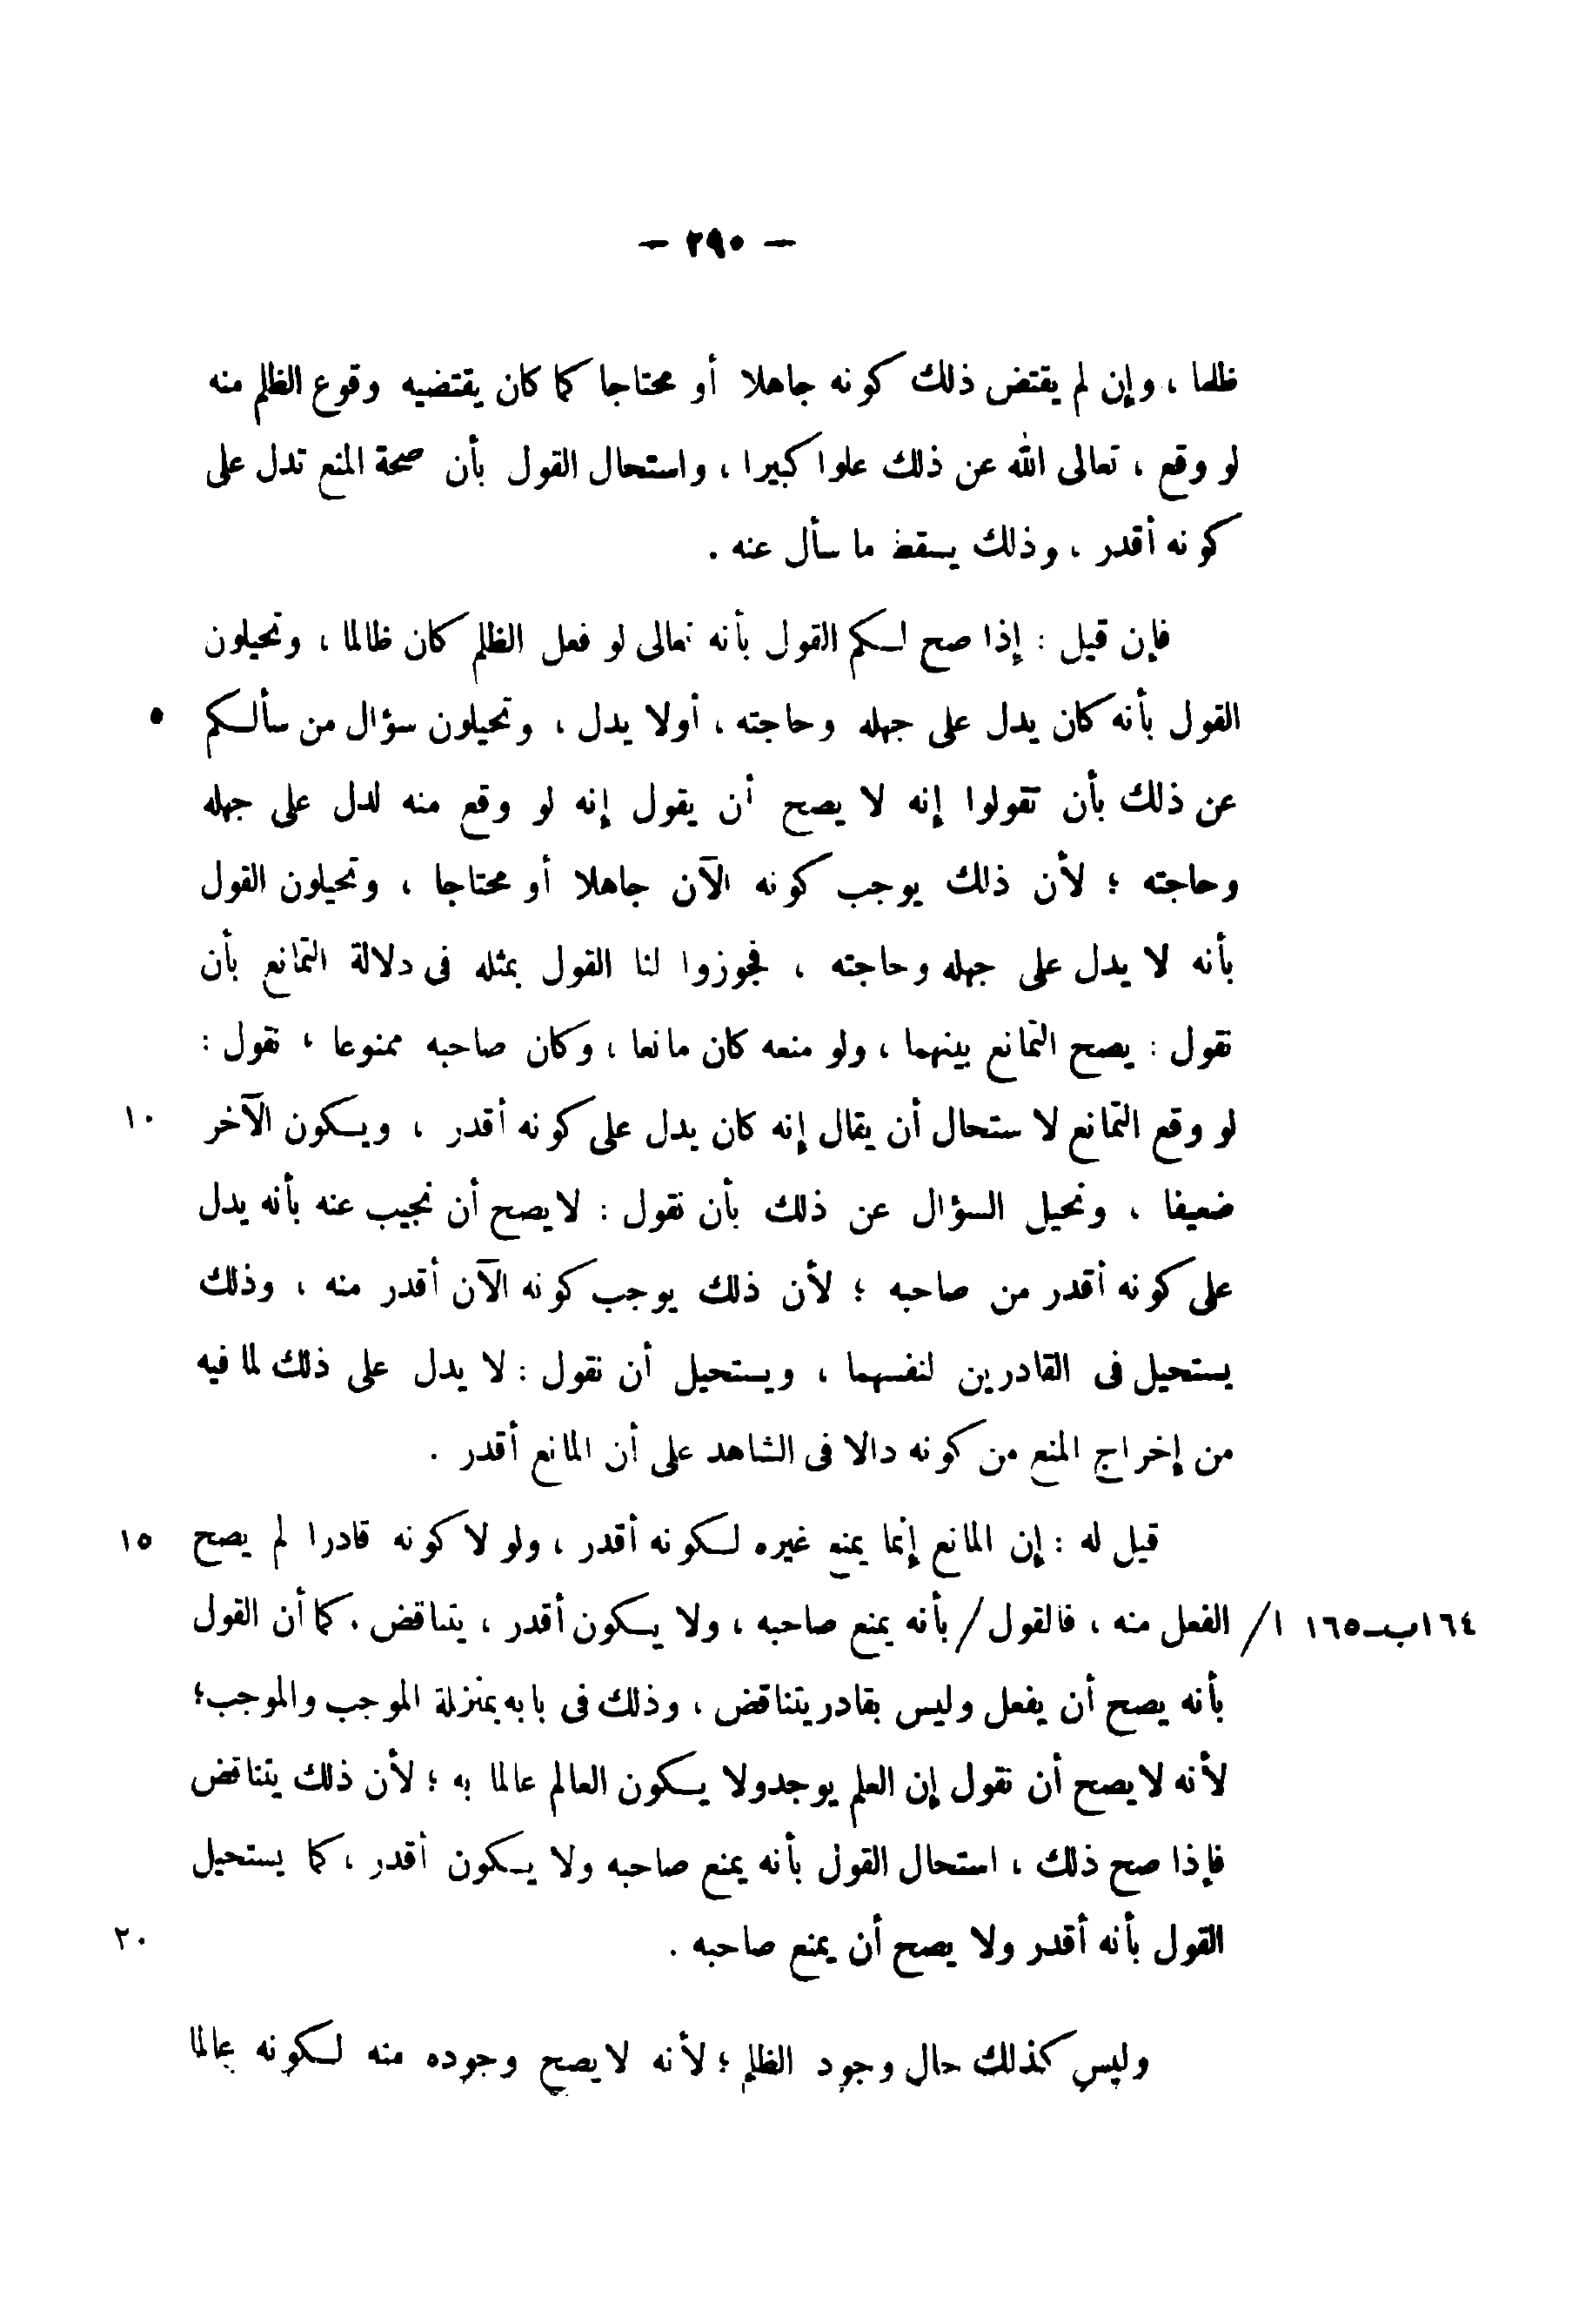 — ٢٩٠ —
ظلما ، وإن لم يقتض ذلك كونه جاهلا أو محتاجا كما كان يقتضيه وقوع الظلم منه
لو وقع ، تعالى الله عن ذلك علوا كبيرا ، واستحال القول بأن صحة المنع تدل على
كونه أقدر ، وذلك يسقط ما سأل عنه .
فإن قيل : إذا صح لكم القول بأنه تعالى لو فعل الظلم كان ظالما ، وتحيلون
القول بأنه كان يدل على جهله وحاجته ، أولا يدل ، وتحيلون سؤال من سألكم ٥
عن ذلك بأن تقولوا إنه لا يصح أن يقول إنه لو وقع منه لدل على جهله
وحاجته ؛ لأن ذلك يوجب كونه الآن جاهلا أو محتاجا ، وتحيلون القول
بأنه لا يدل على جهله وحاجته ، فجوزوا لنا القول بمثله فى دلالة التمانع بأن
نقول : يصح التمانع بينهما ، ولو منعه كان مانعا ، وكان صاحبه ممنوعا ، نقول :
لو وقع التمانع لاستحال أن يقال إنه كان يدل على كونه أقدر ، ويكون الآخر ١٠
ضعيفا ، ونحيل السؤال عن ذلك بأن نقول : لا يصح أن نجيب عنه بأنه يدل
على كونه أقدر من صاحبه ؛ لأن ذلك يوجب كونه الآن أقدر منه ، وذلك
يستحيل فى القادرين لنفسهما ، ويستحيل أن نقول : لا يدل على ذلك لما فيه
من إخراج المنع من كونه دالا فى الشاهد على أن المانع أقدر .
قيل له : إن المانع إنما يمنع غيره لكونه أقدر ، ولو لا كونه قادرا لم يصح ١٥
١٦٤ب-١٦٥ ا/ الفعل منه ، فالقول / بأنه يمنع صاحبه ، ولا يكون أقدر ، يتناقض . كما أن القول
بأنه يصح أن يفعل وليس بقادر يتناقض ، وذلك فى بابه بمنزلة الموجب والموجب؛
لأنه لا يصح أن نقول إن العلم يوجد ولا يكون العالم عالما به ؛ لأن ذلك يتناقض
فإذا صح ذلك ، استحال القول بأنه يمنع صاحبه ولا يكون أقدر ، كما يستحيل
القول بأنه أقدر ولا يصح أن يمنع صاحبه . ٢٠
وليس كذلك حال وجود الظلم ؛ لأنه لا يصح وجوده منه لكونه عالما